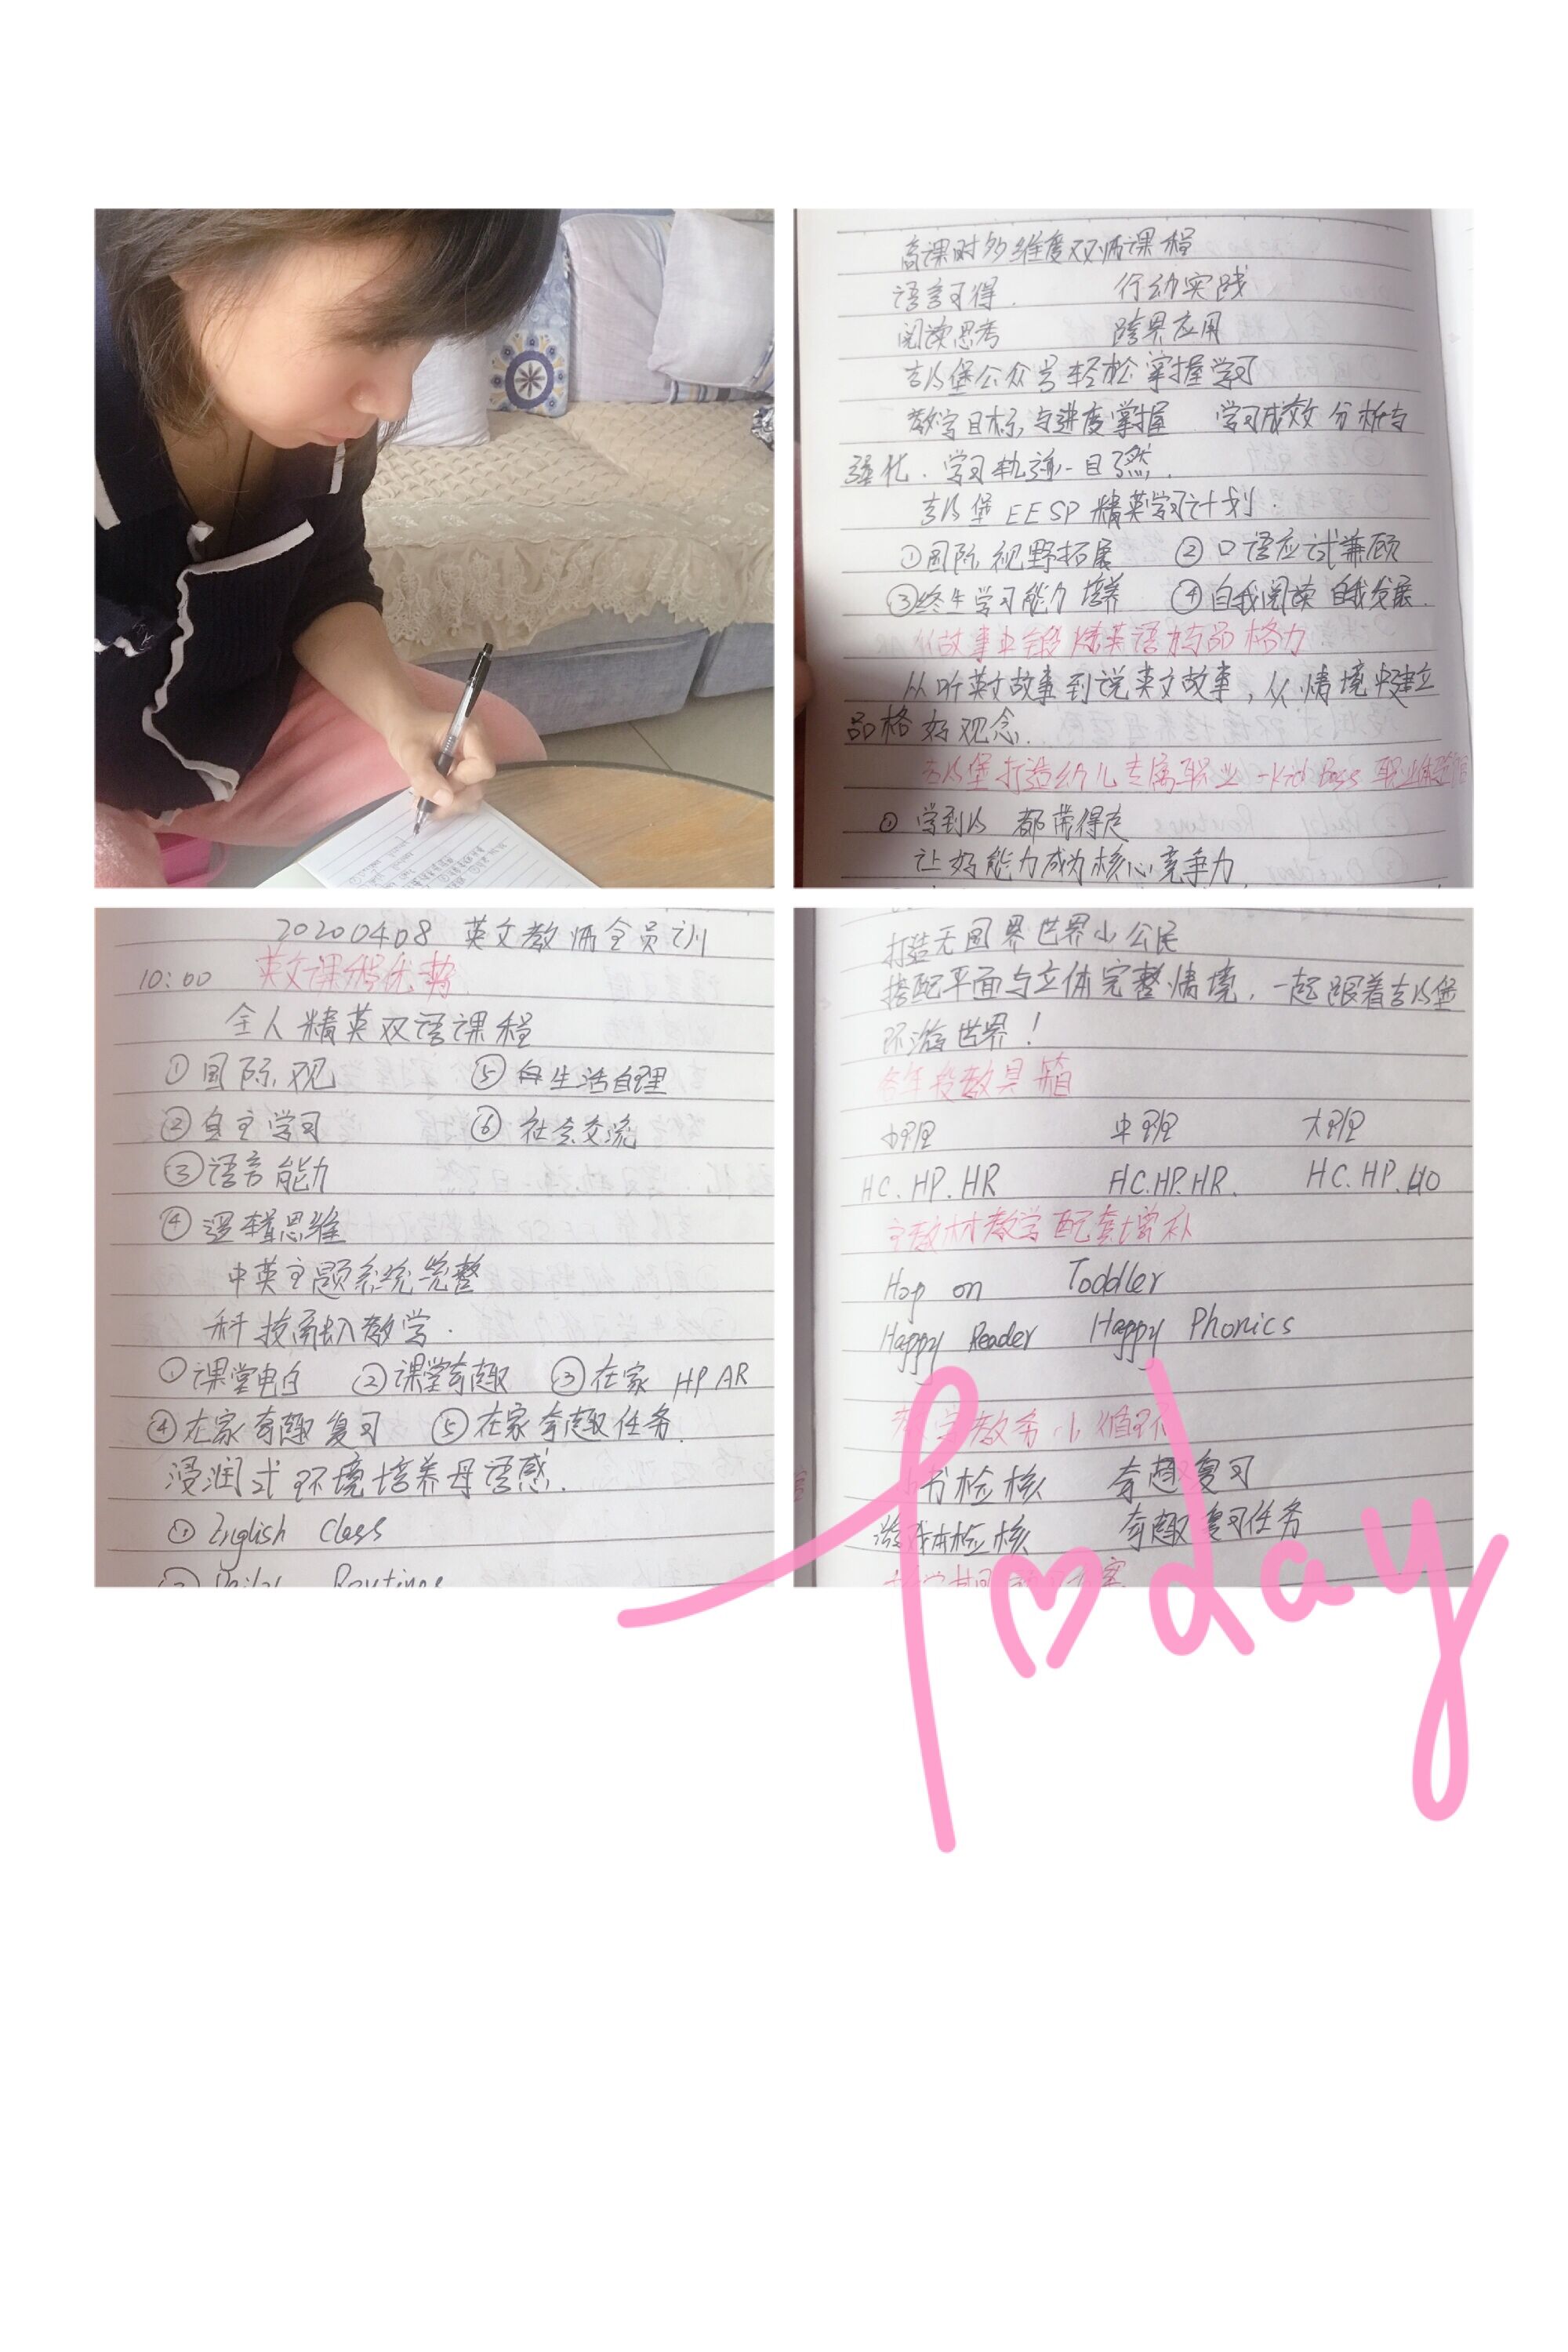 高课时多维度双师课程
语言习得. 行动实践
阅读思考 跨界应用
吉的堡公众号轻松掌握学习
教学目标与进度掌握 学习成效分析与
强化. 学习轨迹一目了然.
吉的堡EESP精英学习计划.
①国际视野拓展 ②口语应试兼顾
③终生学习能力培养 ④自我阅读 自我发展.
从故事中锻炼英语与品格力
从听英文故事到说英文故事,从情境中建立
品格好观念.
吉的堡打造幼儿专属职业-Kid Boss 职业体验馆
① 学到的 都带得走
让好能力成为核心竞争力
20200408 英文教师全员训
10:00 英文课程优势
全人精英双语课程
①国际观 ⑤生活自理
②自主学习 ⑥社会交流
③语言能力
④逻辑思维
中英主题系统完整
科技融入教学.
①课堂电白 ②课堂奇趣 ③在家 HP AR
④在家奇趣复习 ⑤在家奇趣任务.
浸润式环境培养母语感.
① English Class
② Daily Routines
打造无国界世界小公民
搭配平面与立体完整情境,一起跟着吉的堡
环游世界!
各年段教具箱
小班 中班 大班
HC.HP.HR HC.HP.HR. HC.HP.HO
主教材教学配套增补
Hop on Toddler
Happy Reader Happy Phonics
教学教务小循环
书检核 奇趣复习
游戏本检核 奇趣复习任务
Today